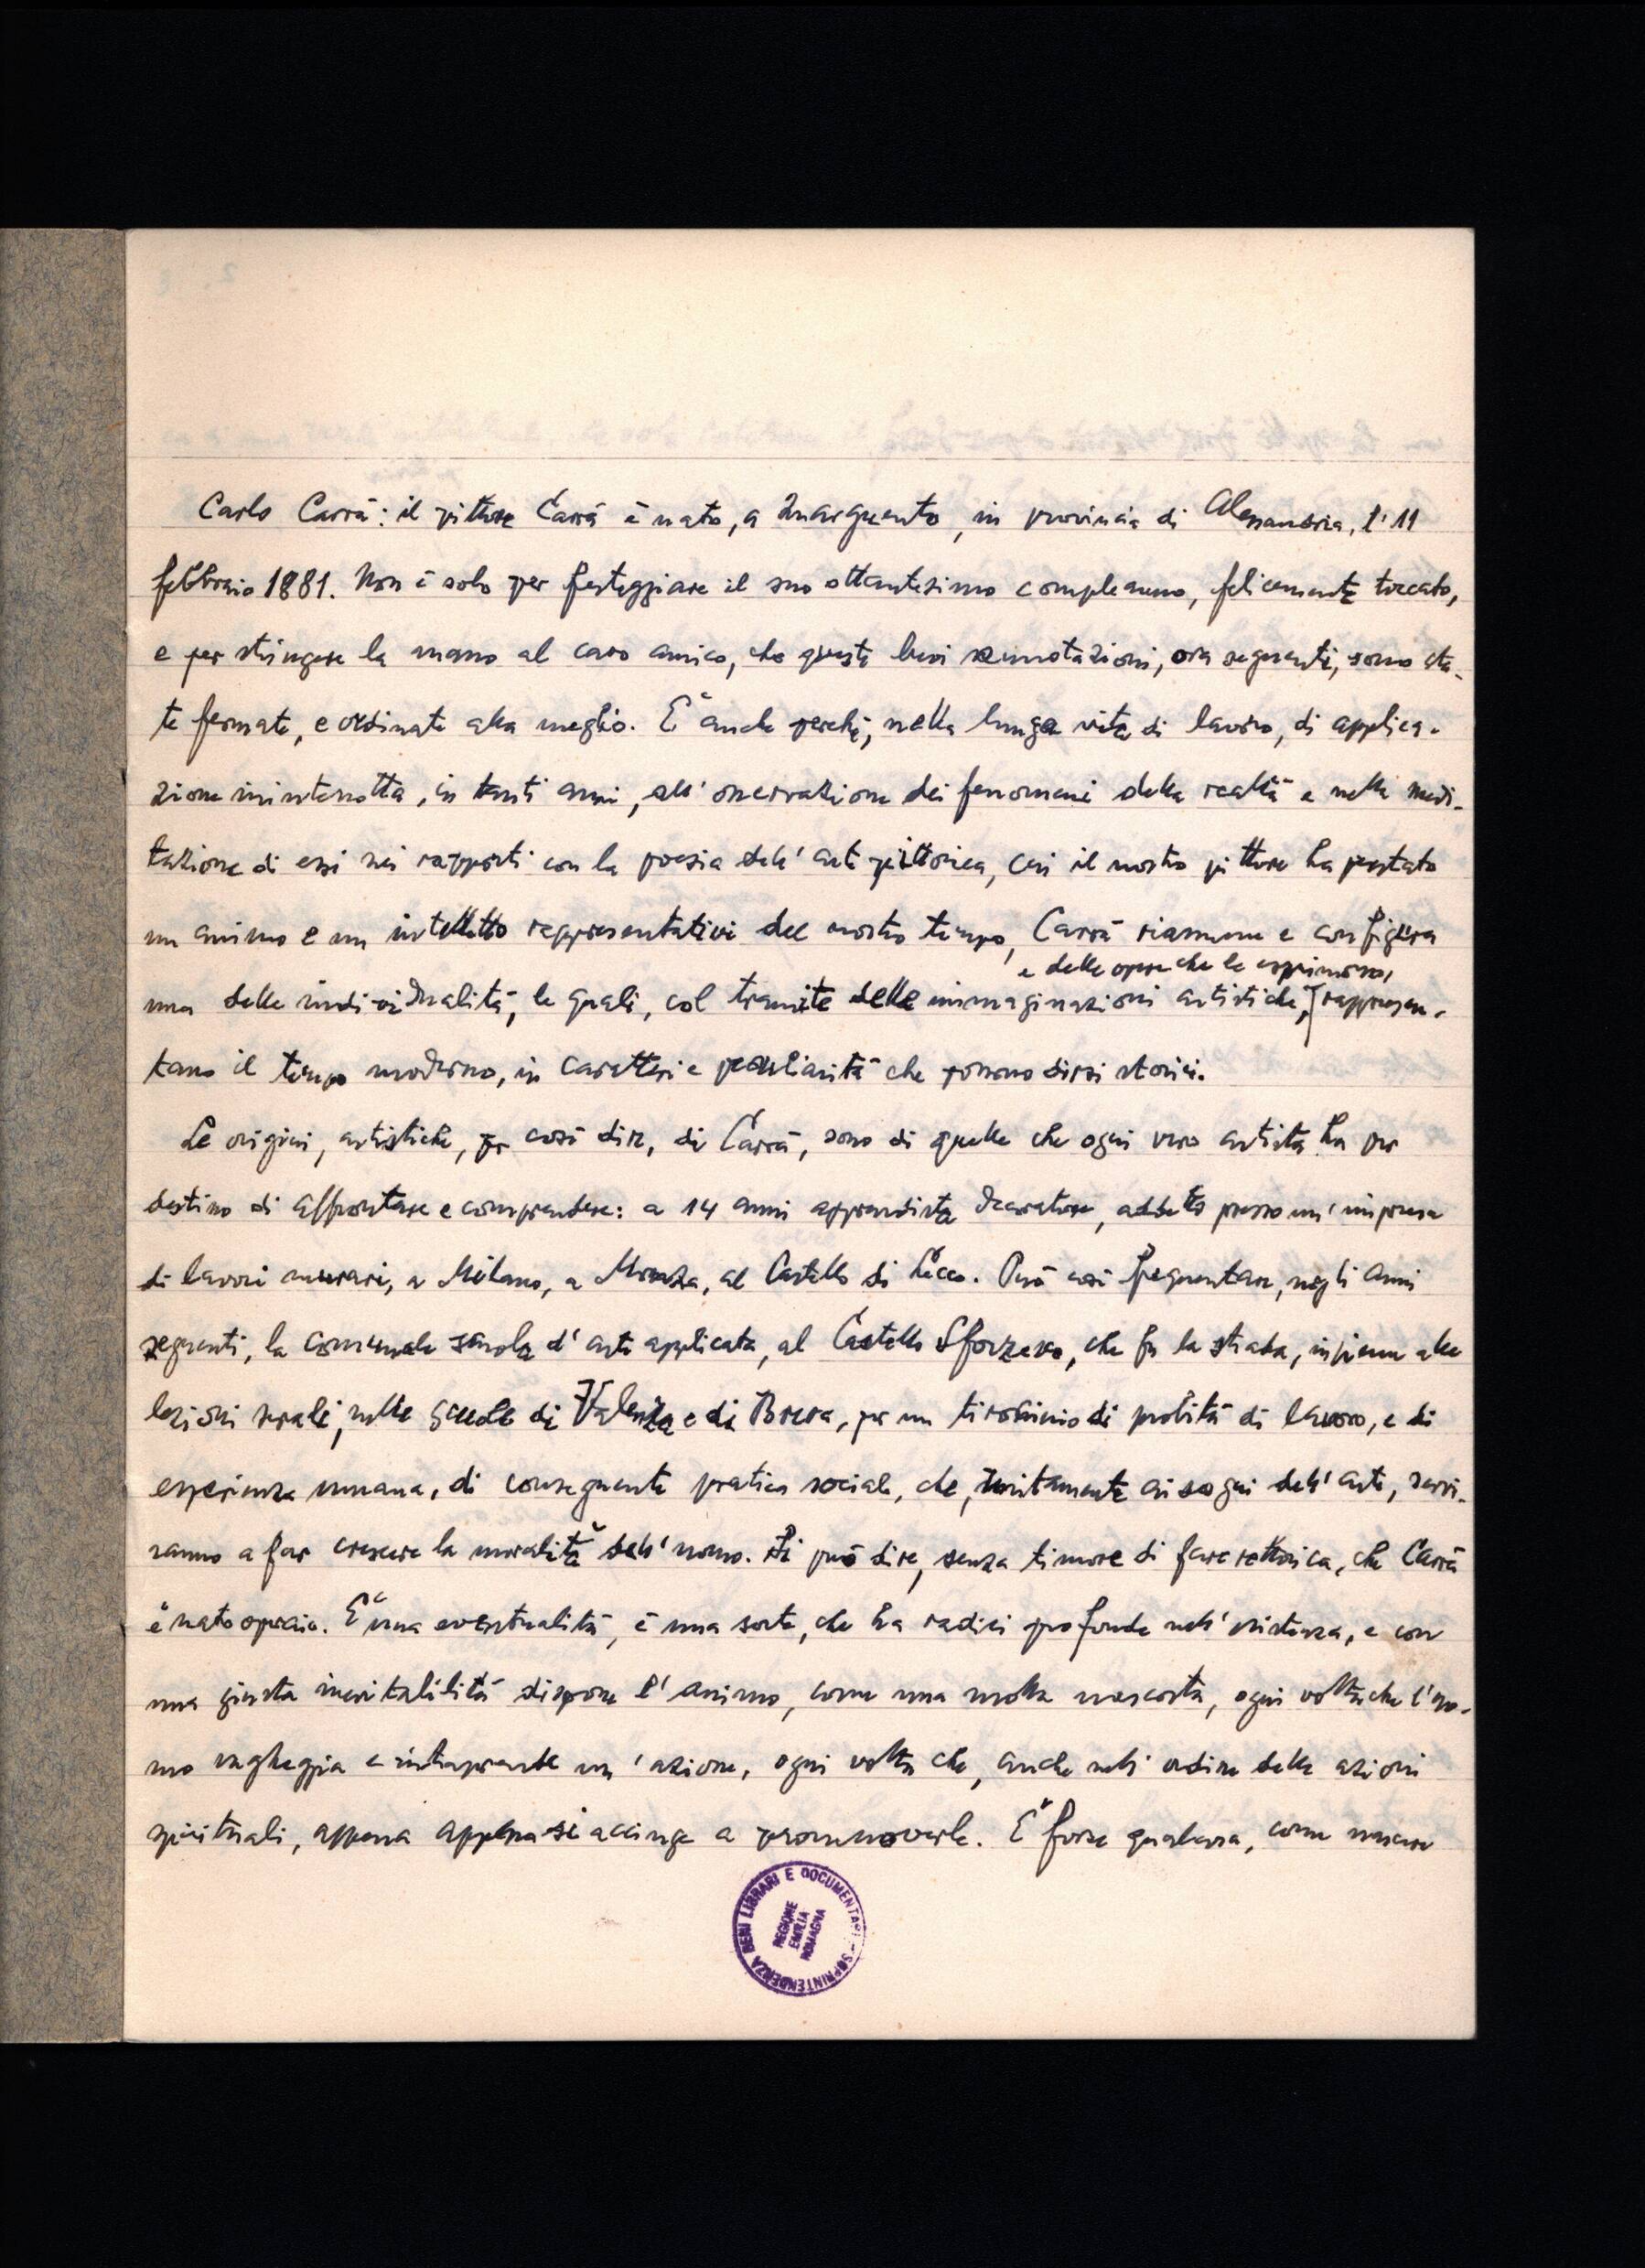 Carlo Carrà: il pittore Carrà è nato, a Quargnento, in provincia di Alessandria, l'11
febbraio 1881. Non è solo per festeggiare il suo ottantesimo compleanno, felicemente toccato,
e per stringere la mano al caro amico, che queste brevi annotazioni, ora seguenti, sono sta-
te fermate, e ordinate alla meglio. E' anche perchè, nella lunga vita di lavoro, di applica-
zione ininterrotta, in tanti anni, all'osservazione dei fenomeni della realtà e nella medi-
tazione di essi nei rapporti con la poesia dell'arte pittorica, cui il nostro pittore ha prestato
un animo e un intelletto rappresentativi del nostro tempo, Carrà riassume e configura
e delle opere che le esprimono,
una delle individualità, le quali, col tramite delle immaginazioni artistiche, rappresen-
tano il tempo moderno, in caratteri e peculiarità che possono dirsi storici.
Le origini, artistiche, per così dire, di Carrà, sono di quelle che ogni vero artista ha per
destino di affrontare e comprendere: a 14 anni apprendista decoratore, addetto presso un'impresa
di lavori murari, a Milano, a Monza, al Castello di Lecco. Può così frequentare, negli anni
seguenti, la comunale scuola d'arte applicata, al Castello Sforzesco, che fu la strada, insieme alle
lezioni serali, nelle scuole di Valenza e di Brera, per un tirocinio di probità di lavoro, e di
esperienza umana, di conseguente pratica sociale, che, unitamente ai sogni dell'arte, servi-
ranno a far crescere la moralità dell'uomo. Si può dire, senza timore di fare rettorica, che Carrà
è nato operaio. E' una eventualità, è una sorte, che ha radici profonde nell'esistenza, e con
una giusta inevitabilità dispone l'animo, come una molla nascosta, ogni volta che l'uo-
mo vagheggia e intraprende un'azione, ogni volta che, anche nell'ordine delle azioni
spirituali, appena appena si accinge a promuoverle. E' forse qualcosa, come nascere
SOPRINTENDENZA BENI LIBRARI E DOCUMENTARI
REGIONE
EMILIA
ROMAGNA